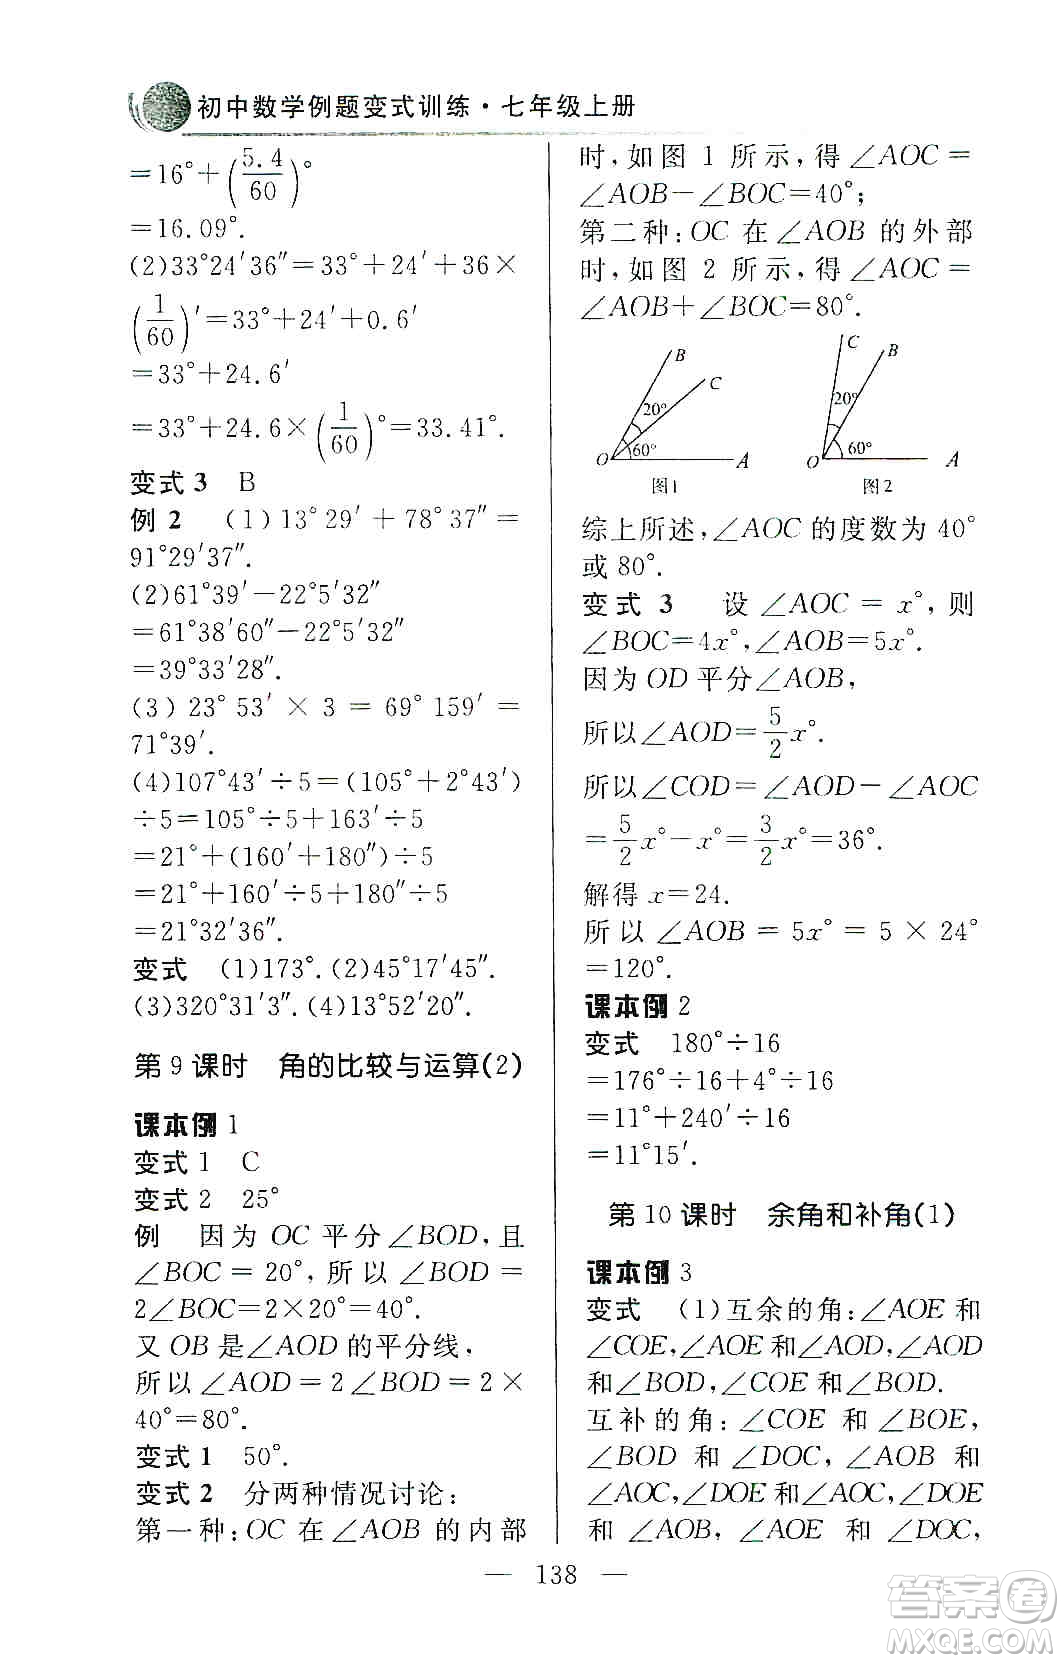 初中数学例题变式训练·七年级上册
=16°+(5.4/60)°
=16.09°.
(2)33°24′36″=33°+24′+36×
(1/60)′=33°+24′+0.6′
=33°+24.6′
=33°+24.6×(1/60)°=33.41°.
变式3 B
例2 (1)13°29′+78°37″=
91°29′37″.
(2)61°39′-22°5′32″
=61°38′60″-22°5′32″
=39°33′28″.
(3)23°53′×3=69°159′=
71°39′.
(4)107°43′÷5=(105°+2°43′)
÷5=105°÷5+163′÷5
=21°+(160′+180″)÷5
=21°+160′÷5+180″÷5
=21°32′36″.
变式 (1)173°.(2)45°17′45″.
(3)320°31′3″.(4)13°52′20″.
第9课时 角的比较与运算(2)
课本例1
变式1 C
变式2 25°
例 因为OC平分∠BOD,且
∠BOC=20°,所以∠BOD=
2∠BOC=2×20°=40°.
又OB是∠AOD的平分线,
所以∠AOD=2∠BOD=2×
40°=80°.
变式1 50°.
变式2 分两种情况讨论:
第一种:OC在∠AOB的内部
时,如图1所示,得∠AOC=
∠AOB-∠BOC=40°;
第二种:OC在∠AOB的外部
时,如图2所示,得∠AOC=
∠AOB+∠BOC=80°.
B
C
20°
60°
O
A
图1
C
B
20°
60°
O
A
图2
综上所述,∠AOC的度数为40°
或80°.
变式3 设∠AOC=x°,则
∠BOC=4x°,∠AOB=5x°.
因为OD平分∠AOB,
所以∠AOD=5/2x°.
所以∠COD=∠AOD-∠AOC
=5/2x°-x°=3/2x°=36°.
解得x=24.
所以∠AOB=5x°=5×24°
=120°.
课本例2
变式 180°÷16
=176°÷16+4°÷16
=11°+240′÷16
=11°15′.
第10课时 余角和补角(1)
课本例3
变式 (1)互余的角:∠AOE和
∠COE,∠AOE和∠AOD,∠AOD
和∠BOD,∠COE和∠BOD.
互补的角:∠COE和∠BOE,
∠BOD和∠DOC,∠AOB和
∠AOC,∠DOE和∠AOC,∠DOE
和∠AOB,∠AOE和∠DOC,
— 138 —
答案圈
MXQE.COM